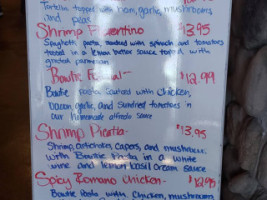 Tortellini topped with ham, garlic, mushrooms
and peas
Shrimp Fiorentino $13.95
Spaghetti pasta sauteed with spinach and tomatoes
tossed in a lemon butter sauce topped with
grated parmesan
Bowtie - $12.99
Bowtie Pasta sauteed with chicken,
bacon, garlic, and Sundried tomatoes in
our homemade alfredo sauce
Shrimp Picatta - $13.95
Shrimp, artichokes, capers, and mushrooms
with Bowtie Pasta in a white
wine and lemon basil cream sauce
Spicy Romano Chicken - $12.95
Bowtie Pasta with Chicken, mushrooms